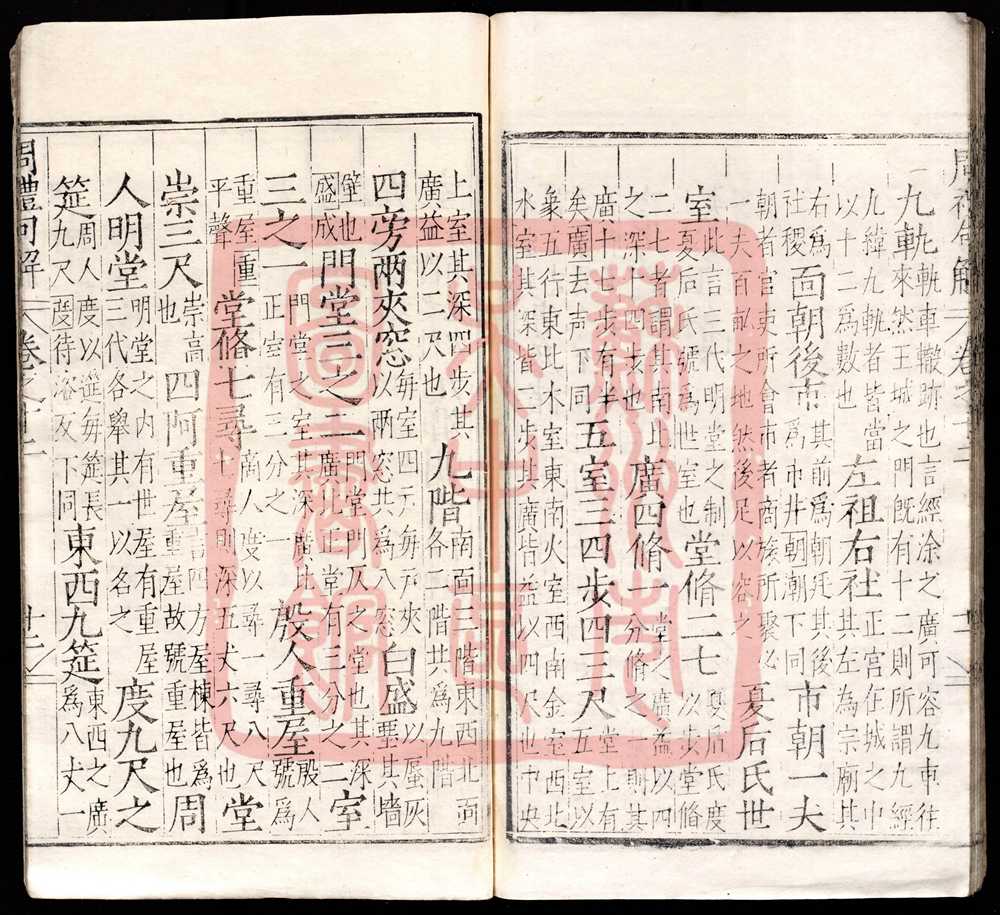 周禮句解 卷之十二
九軌軌車轍跡也言經涂之廣可容九車往來然王城之明既有十二則所謂九經
九緯九軌者皆當以十二為數也左祖右社正宮在城之中其左為宗廟其
右為社稷面朝後市其前為朝廷其後為市井朝潮下同市朝一夫
朝者官吏所會市者商旅所聚必一夫百畝之地然後足以容之夏后氏世
室此言三代明堂之制夏后氏號為世室也堂脩二七夏后氏度以步堂脩
二七者謂其南北之深十四步也廣四脩一堂之廣益以四分脩之一則其
廣十七步有半矣廣去声下同五室三四步四三尺堂上有五室以
象五行東北木室東南火室西南金室西北水室其深皆三步其廣皆益以四尺也中央
上室其深四步其廣益以二尺也九階南面三階東西北面各二階共為九階
四旁兩夾窓每室四戶每戶夾以兩窓共為八窓白盛以蜃灰堊其墻
壁也盛成門堂三之二門堂門仄之堂也其深廣北正堂有三分之二室
三之一門堂之室其深廣比正室有三分之一殷人重屋殷人號為
重屋重平聲堂脩七尋商人度以尋一尋八尺七尋則深五丈六尺也堂
崇三尺崇高也四阿重屋言四方屋棟皆為重屋故號重屋也周
人明堂明堂之内有世屋有重屋三代各舉其一以名之度九尺之
筵周人度以筵每筵長九尺度待洛反下同東西九筵東西之廣為八丈一
周禮句解 卷之十二 十二
蘇州市
圖書館